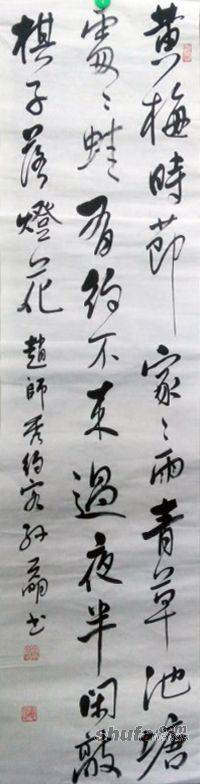 黄梅時節家々雨青草池塘
處々蛙有約不来過夜半閑敲
棋子落燈花 趙師秀約客 孙 书